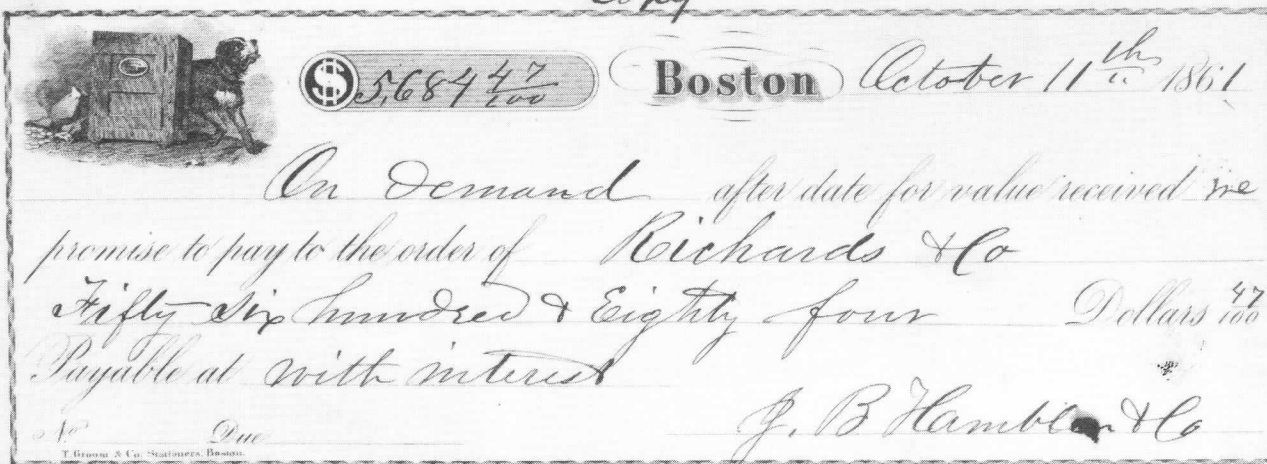 Copy
$ 5,684 47/100 Boston October 11th 1861
On Demand after date for value received we
promise to pay to the order of Richards & Co
Fifty six hundred & Eighty four Dollars 47/100
Payable at with interest
J. B. & Co
No Due
T. Groom & Co. Stationers, Boston.